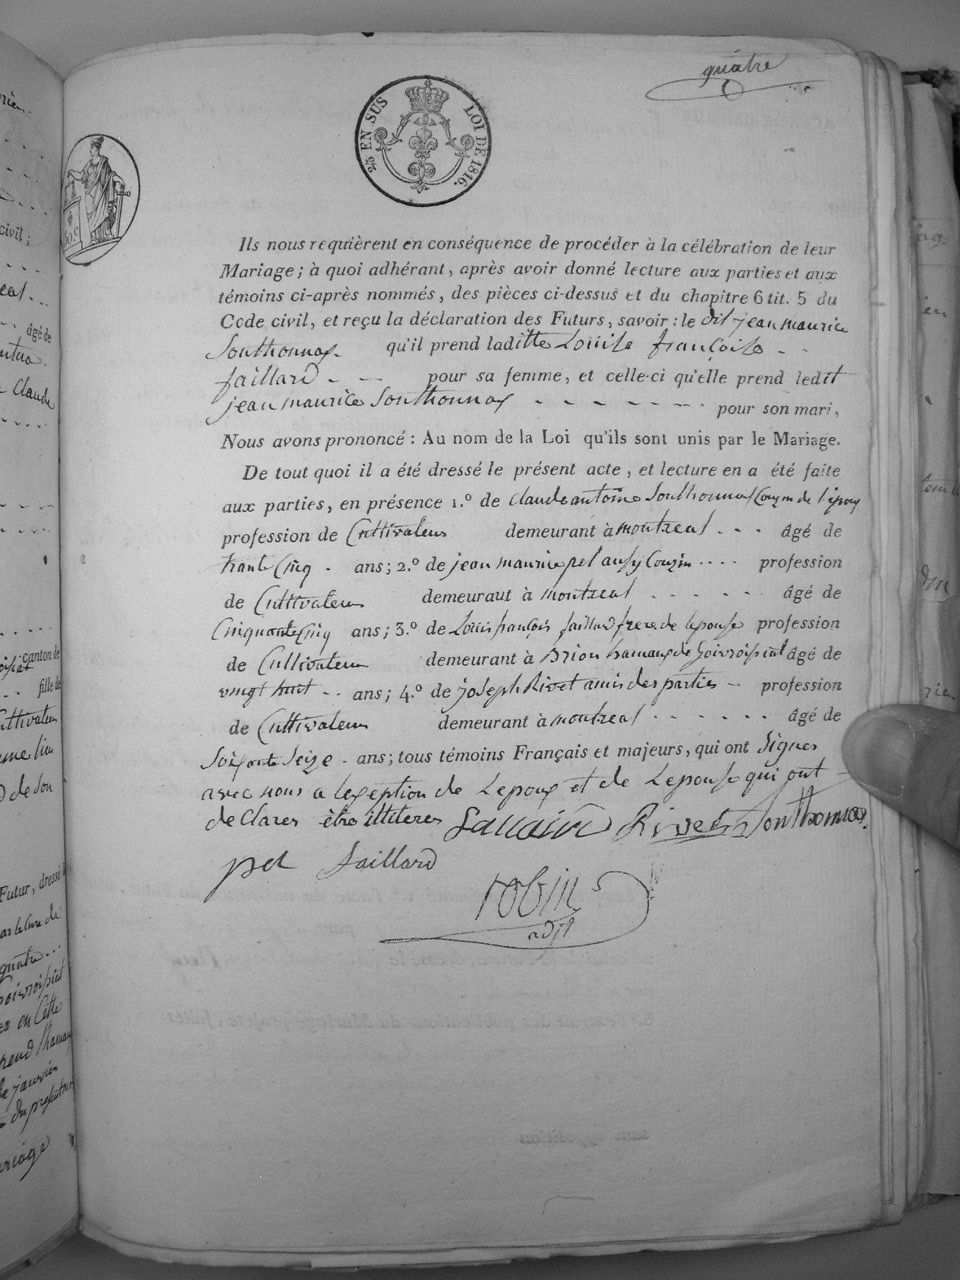 quatre
2/5 EN SUS LOI DE 1816.
Ils nous requièrent en conséquence de procéder à la célébration de leur
Mariage; à quoi adhérant, après avoir donné lecture aux parties et aux
témoins ci-après nommés, des pièces ci-dessus et du chapitre 6 tit. 5 du
Code civil, et reçu la déclaration des Futurs, savoir: le dit jean maurice
Sonthonnax qu'il prend laditte Louise françoise
faillard pour sa femme, et celle-ci qu'elle prend ledit
jean maurice Sonthonnax pour son mari,
Nous avons prononcé: Au nom de la Loi qu'ils sont unis par le Mariage.
De tout quoi il a été dressé le présent acte, et lecture en a été faite
aux parties, en présence 1.º de Claude antoine Sonthonnax Couzin de l'epoux
profession de Cultivateur demeurant à montreal âgé de
trante Cinq ans; 2.º de jean maurice pel aussy Couzin profession
de Cultivateur demeuraut à montreal âgé de
Cinquante Cinq ans; 3.º de Louis françois faillard frere de lepouse profession
de Cultivateur demeurant à Brion hamaux de âgé de
vingt huit ans; 4.º de joseph Rivet amis des parties profession
de Cultivateur demeurant à montreal âgé de
Soixante Seize ans; tous témoins Français et majeurs, qui ont Signes
avec nous a lexeption de Lepoux et de Lepouse qui ont
de Clares être illiteres Rivet Sonthonnax
pel faillard
robin
adjt